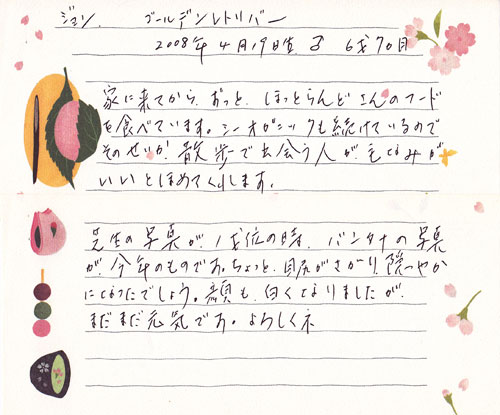 ジョン ゴールデンレトリバー
2008年4月19日生 ♂ 6才70日
家に来てから、ずっと、ほっとらんどさんのフード
を食べています。シーオガニックも続けているので
そのせいか散歩で出会う人が毛なみが
いいとほめてくれます。
芝生の写真が、1才位の時、バンダナの写真
が、今年のものです。ちょっと、目尻がさがり、隠やか
になったでしょう。顔も、白くなりましたが、
まだまだ元気です。よろしくネ